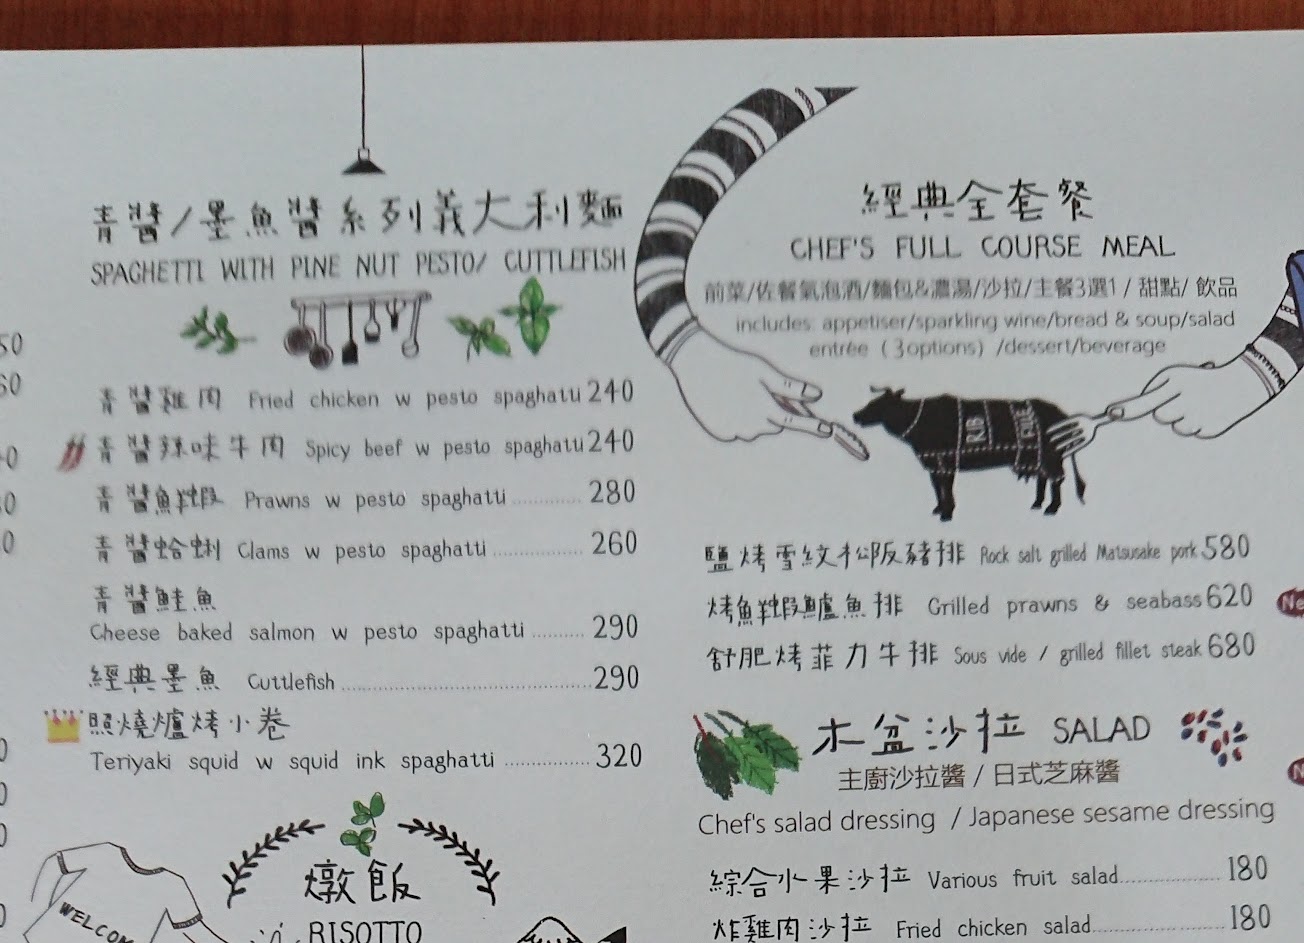 青醬/墨魚醬系列義大利麵
SPAGHETTI WITH PINE NUT PESTO/ CUTTLEFISH
青醬雞肉 Fried chicken w pesto spaghatti 240
青醬辣味牛肉 Spicy beef w pesto spaghatti 240
青醬鮮蝦 Prawns w pesto spaghatti 280
青醬蛤蜊 Clams w pesto spaghatti 260
青醬鮭魚
Cheese baked salmon w pesto spaghatti 290
經典墨魚 Cuttlefish 290
照燒爐烤小卷
Teriyaki squid w squid ink spaghatti 320
燉飯
RISOTTO
WELCOM
經典全套餐
CHEF'S FULL COURSE MEAL
前菜/佐餐氣泡酒/麵包&濃湯/沙拉/主餐3選1 / 甜點/ 飲品
includes: appetiser/sparkling wine/bread & soup/salad
entrée ( 3options) /dessert/beverage
RIB
鹽烤雪紋松阪豬排 Rock salt grilled Matsusake pork 580
烤鮮蝦鱸魚排 Grilled prawns & seabass 620
舒肥烤菲力牛排 Sous vide / grilled fillet steak 680
木盆沙拉 SALAD
主廚沙拉醬 / 日式芝麻醬
Chef's salad dressing / Japanese sesame dressing
綜合水果沙拉 Various fruit salad 180
炸雞肉沙拉 Fried chicken salad 180